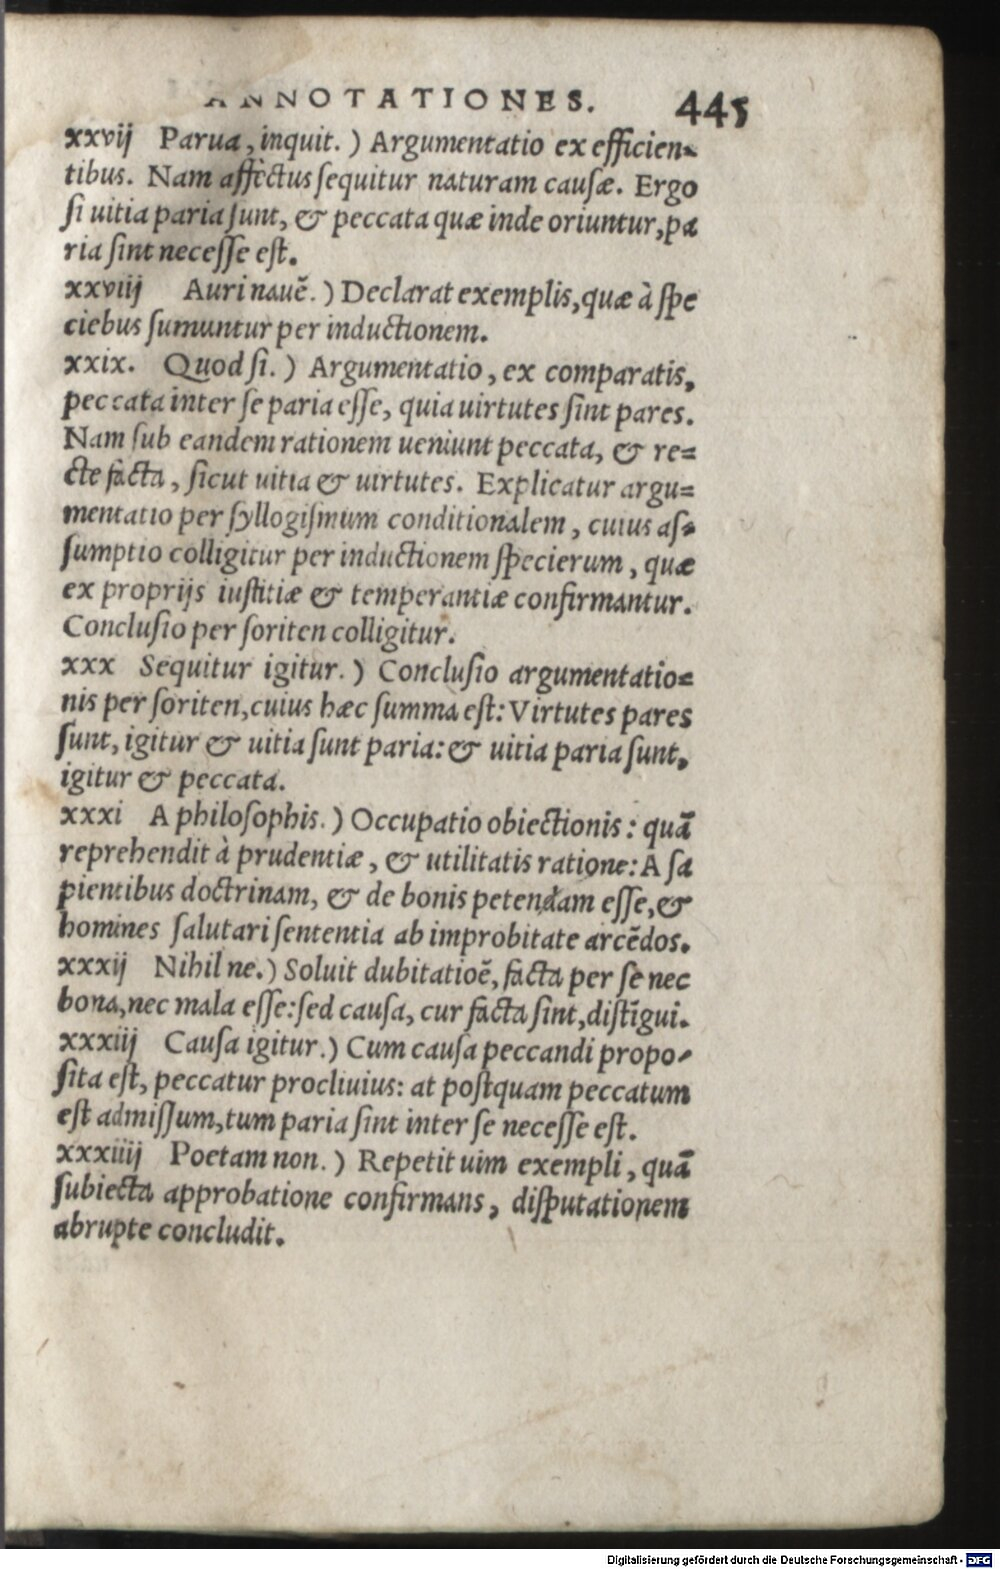 ANNOTATIONES. 445
xxvij Parua, inquit.) Argumentatio ex efficien=
tibus. Nam affectus sequitur naturam causæ. Ergo
si uitia paria sunt, & peccata quæ inde oriuntur, pa
ria sint necesse est.
xxviij Auri nauē.) Declarat exemplis, quæ à spe
ciebus sumuntur per inductionem.
xxix. Quod si.) Argumentatio, ex comparatis,
peccata inter se paria esse, quia uirtutes sint pares.
Nam sub eandem rationem ueniunt peccata, & re=
cte facta, sicut uitia & uirtutes. Explicatur argu=
mentatio per syllogismum conditionalem, cuius as=
sumptio colligitur per inductionem specierum, quæ
ex proprijs iustitiæ & temperantiæ confirmantur.
Conclusio per soriten colligitur.
xxx Sequitur igitur.) Conclusio argumentatio=
nis per soriten, cuius hæc summa est: Virtutes pares
sunt, igitur & uitia sunt paria: & uitia paria sunt,
igitur & peccata.
xxxi A philosophis.) Occupatio obiectionis: quā
reprehendit à prudentiæ, & utilitatis ratione: A sa
pientibus doctrinam, & de bonis petendam esse, &
homines salutari sententia ab improbitate arcēdos.
xxxij Nihil ne.) Soluit dubitatioē, facta per se nec
bona, nec mala esse: sed causa, cur facta sint, distīgui.
xxxiij Causa igitur.) Cum causa peccandi propo=
sita est, peccatur procliuius: at postquam peccatum
est admissum, tum paria sint inter se necesse est.
xxxiiij Poetam non.) Repetit uim exempli, quā
subiecta approbatione confirmans, disputationem
abrupte concludit.
Digitalisierung gefördert durch die Deutsche Forschungsgemeinschaft - DFG